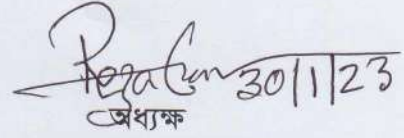 30/1/23
অধ্যক্ষ